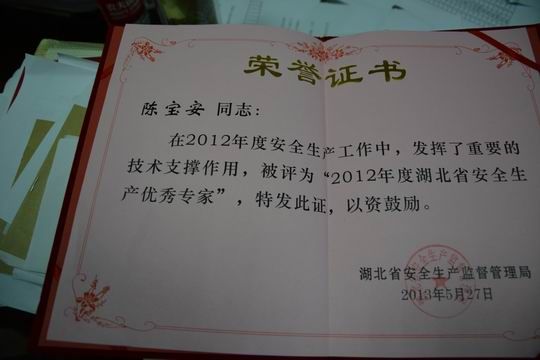 荣誉证书
陈宝安 同志：
在2012年度安全生产工作中，发挥了重要的
技术支撑作用，被评为“2012年度湖北省安全生
产优秀专家”，特发此证，以资鼓励。
湖北省安全生产监督管理局
2013年5月27日